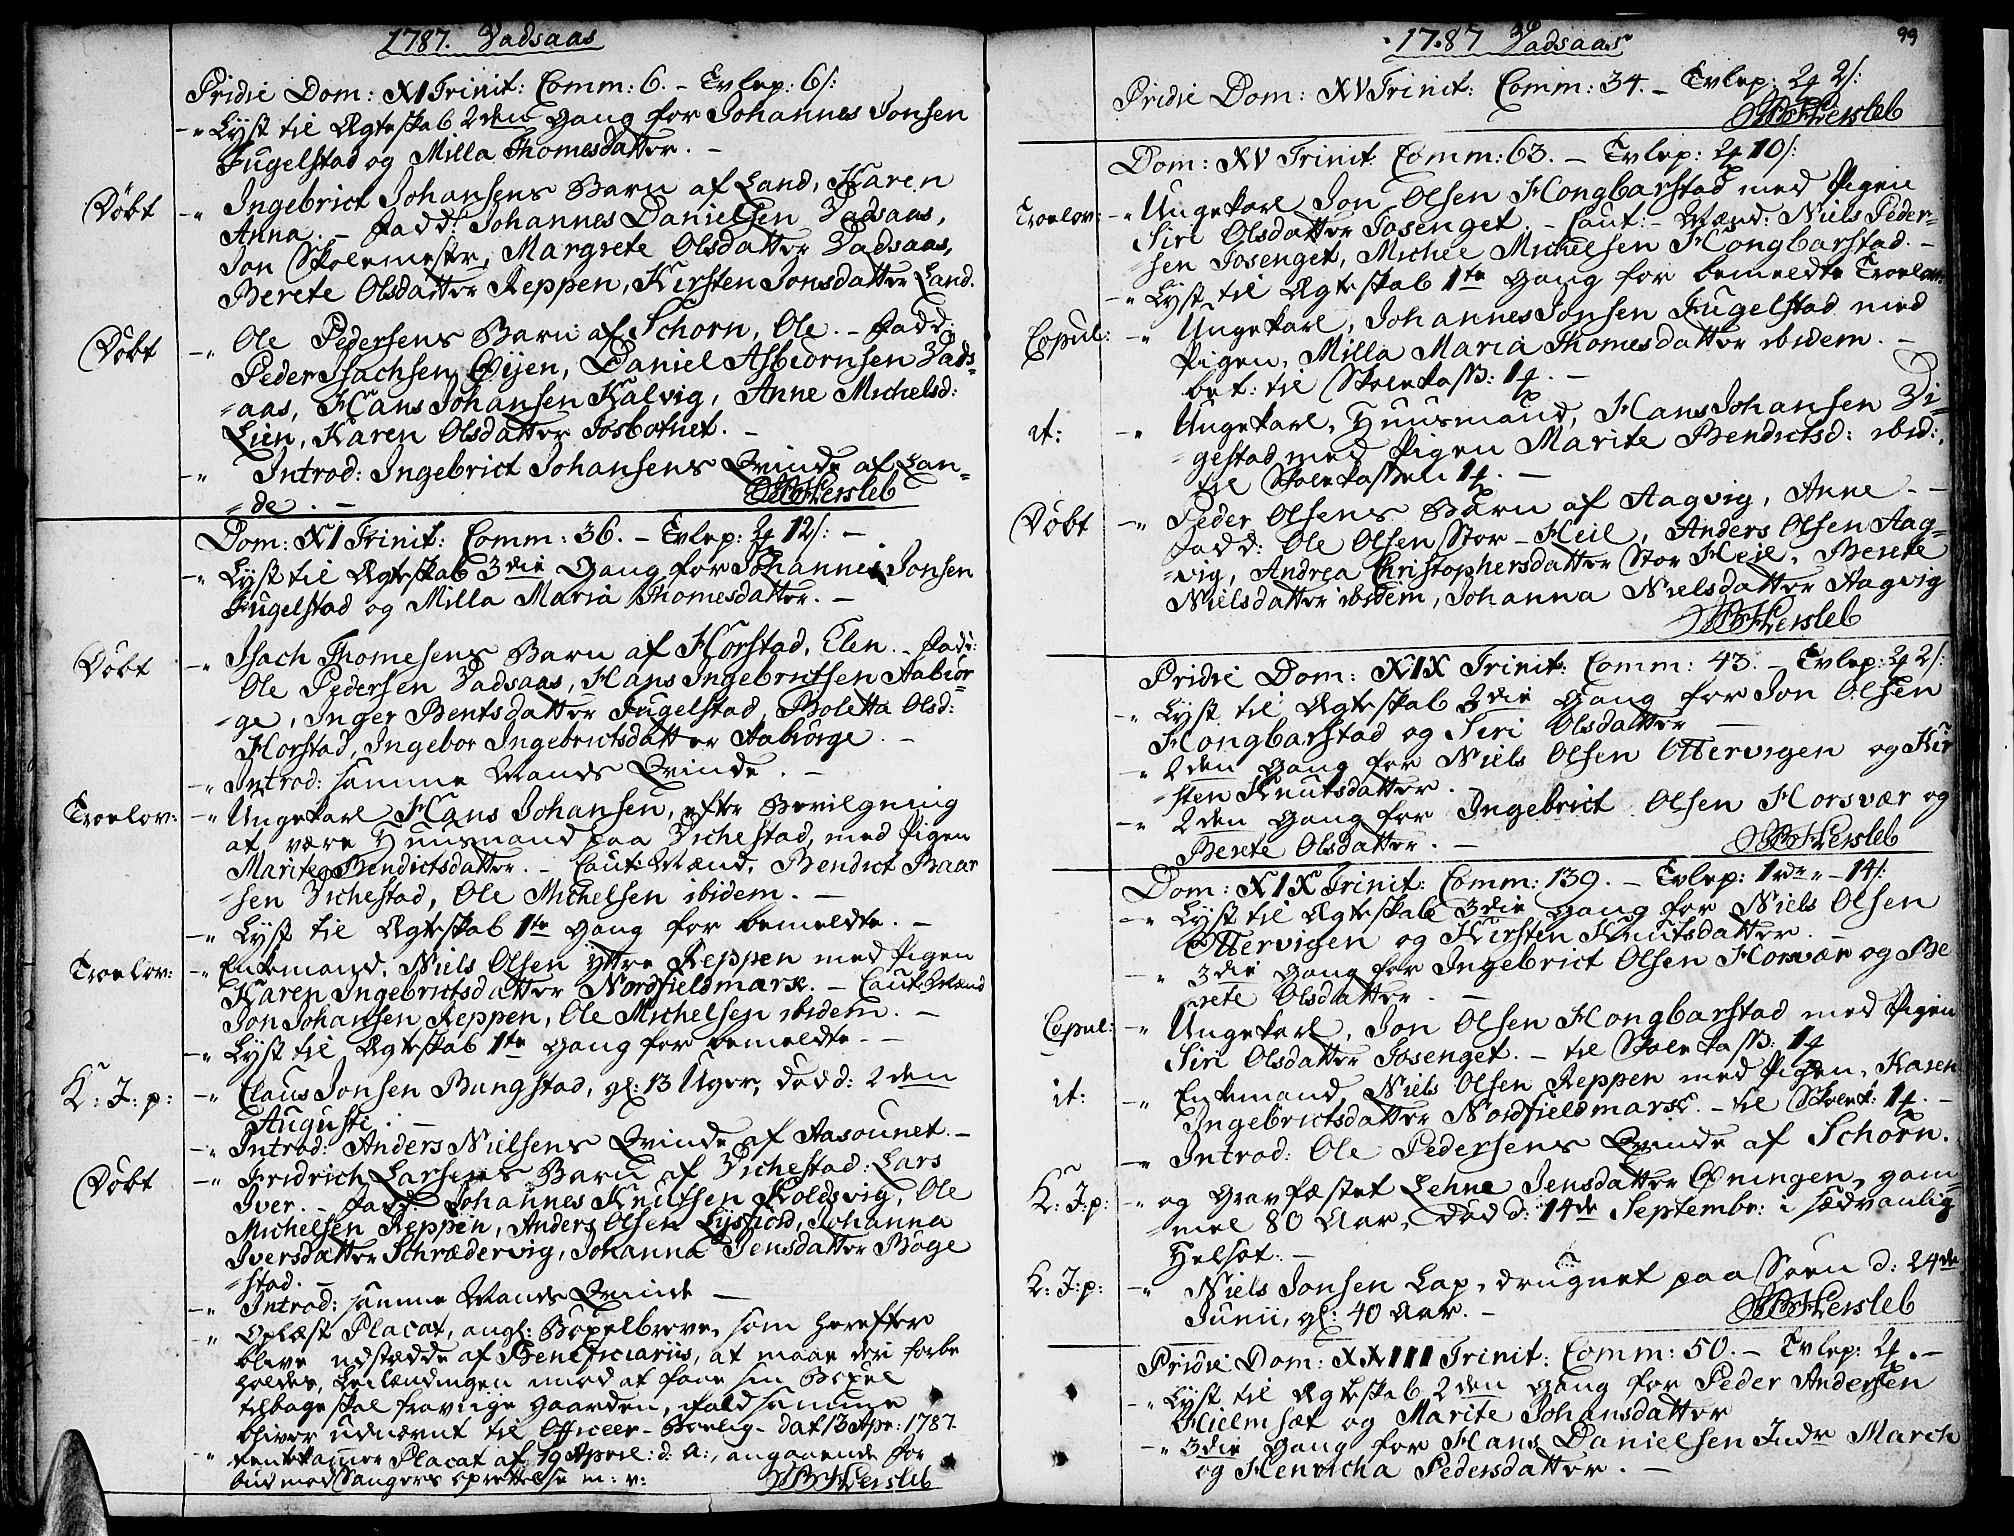 1787. Vadsaas
Pridie Dom: XI Trinit: Comm: 6. – Tvlep: 6 s:
–„ Lyst til Ægteskab 2den Gang for Johannes Jonsen
Fugelstad og Milla Thomesdatter. –
Døbt –„ Ingebrict Johansens Barn af Land, Karen
Anna. – Fadd: Johannes Danielsen Vadsaas,
Jon Skolemestr, Margrete Olsdatter Vadsaas,
Berete Olsdatter Reppen, Kirsten Jonsdatter Land.
Døbt –„ Ole Pedersens Barn af Schorn, Ole. – Fadd:
Peder Isachsen Øijen, Daniel Asbiørnsen Vads-
=aas, Hans Johansen Kalvig, Anne Michelsd:
Lien, Karen Olsdatter Fosbotnet. –
–„ Introd: Ingebrict Johansens Qvinde af Lan-
=de. – Hersleb
Dom: XI Trinit: Comm: 36. – Tvlep: 2 12 s: –
–„ Lyst til Ægteskab 3die Gang for Johannes Jonsen
Fugelstad og Milla Maria Thomesdatter. –
Døbt –„ Isach Thomesens Barn af Horstad, Elen. – Fadd:
Ole Pedersen Vadsaas, Hans Ingebrictsen Aabiør-
=ge, Inger Bentsdatter Fugelstad, Boletta Olsd:
Horstad, Ingebor Ingebrictsdatter Aabiørge. –
–„ Introd: samme Mands Qvinde. –
Troelov: –„ Ungekarl Hans Johansen, efter Bevilgning
at være Huusmand paa Vichestad, med Pigen
Marite Bendictsdatter. – Caut: Mænd, Bendict Baar
=sen Vichestad, Ole Michelsen ibidem. –
–„ Lyst til Ægteskab 1te Gang for bemeldte. –
Troelov: –„ Enkemand, Niels Olsen Yttre Reppen med Pigen
Karen Ingebrictsdatter Nordfieldmark. – Caut: Mænd
Jon Johansen Reppen, Ole Michelsen ibidem. –
–„ Lyst til Ægteskab 1te Gang for bemeldte. –
K: J: p: –„ Claus Jonsen Bangstad, gl: 13 Uger, død d: 2den
Augusti. –
–„ Introd: Anders Nielsens Qvinde af Aasounet. –
Døbt –„ Fridrich Larsens Barn af Vichestad: Lars
Iver. – Fadd: Johannes Knutsen Koldsvig, Ole
Michelsen Reppen, Anders Olsen Lysfiord, Johanna
Iversdatter Schrædervig, Johanna Jensdatter Bøge
=stad. –
–„ Introd: samme Mands Qvinde –
–„ Oplæst Placat, angl: Bøxelbreve, som herefter
blive udstædde af Beneficiariis, at maae deri forbe
holdes, Leilændingen imod at faae sin Bøxel
tilbage skal fravige Gaarden, ifald samme
bliver udnævnt til Officeer-Boelig. dat 13 Apr: 1787.
„ Rentekamer Placat af 19 April: d: A:, angaaende for
bud mod Sangers oprettelse m: v: Hersleb

1787 Vadsaas 99
Pridie Dom: XV Trinit: Comm: 34. – Tvlep: 2 2 s:
Hersleb
Dom: XV Trinit: Comm: 63. – Tvlep: 2 10 s:
Troelov: –„ Ungekarl Jon Olsen Hongbarstad med Pigen
Siri Olsdatter Fosenget. – Caut: Mænd: Niels Peder-
sen Fosenget, Michel Michelsen Hongbarstad. –
–„ Lyst til Ægteskab 1te Gang for bemeldte Troelov:
Copul: –„ Ungekarl, Johannes Jonsen Fugelstad med
Pigen, Milla Maria Thomesdatter ibidem. –
bet: til Skolekass: 1
it: –„ Ungekarl, Huusmand, Hans Johansen Vi-
=gestad med Pigen Marite Bendictsd: ibid:.
til Skolekassen 1 . –
Døbt –„ Peder Olsens Barn af Aagvig, Anne –
Fadd: Ole Olsen Stor-Heil, Anders Olsen Aag-
=vig, Andrea Christophersdatter Stor Heil, Berete
Nielsdatter ibidem, Johanna Nielsdatter Aagvig
Hersleb
Pridie Dom: XIX Trinit: Comm: 43. – Tvlep: 2 2 s:
–„ Lyst til Ægteskab 2die Gang for Jon Olsen
Hongbarstad og Siri Olsdatter –
–„ 2den Gang for Niels Olsen Ottervigen og Kir
=sten Knutsdatter.
–„ 2den Gang for Ingebrict Olsen Horsvær og
Berete Olsdatter. – Hersleb
Dom: XIX Trinit: Comm: 139. – Tvlep: 1 rdr „ – 14 s:
–„ Lyst til Ægteskab 3die Gang for Niels Olsen
Ottervigen og Kirsten Knutsdatter. –
–„ 3die Gang for Ingebrict Olsen Horsvær og Be
rete Olsdatter. –
Copul: –„ Ungekarl, Jon Olsen Hongbarstad med Pigen
Siri Olsdatter Fosenget. – til Skolekass: 1
it: –„ Enkemand, Niels Olsen Reppen med Pigen, Karen
Ingebrictsdatter Nordfieldmark. – til Skolek: 1 . –
–„ Introd: Ole Pedersens Qvinde af Schorn.
K: J: p: –„ og Gravfæstet Lehne Jensdatter Øningen, gam-
=mel 80 Aar, død d: 14de Septembr: i sædvanlig
Helsot. –
K: J: p: –„ Niels Jonsen Lap, drugnet paa Søen d: 24de
Junii, gl: 40 Aar. – Hersleb
Pridie Dom: XXIII Trinit: Comm: 50. – Tvlep: 2 . –
–„ Lyst til Ægteskab 2den Gang for Peder Andersen
Hielmsæt og Marite Johansdatter
–„ 3die Gang for Hans Danielsen Indr March
og Henricha Pedersdatter. –